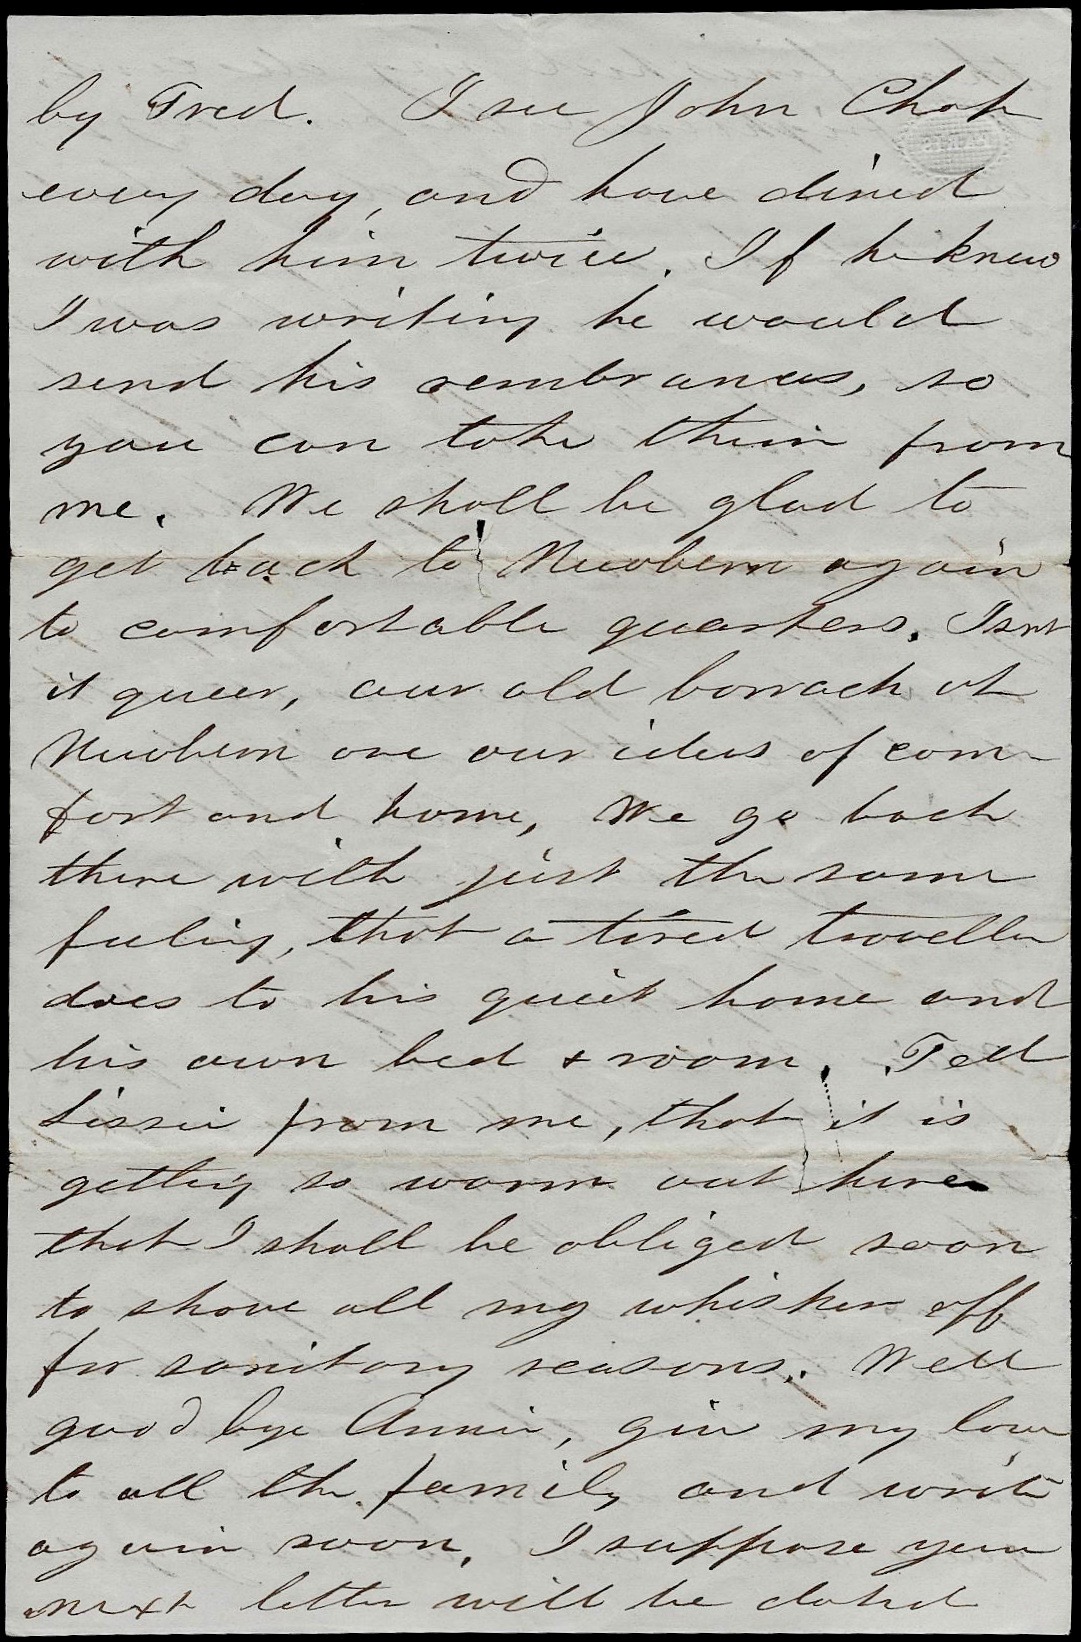 by Fred. I see John Chap
every day, and have dined
with him twice. If he knew
I was writing he would
send his rembrances, so
you can take them from
me. We shall be glad to
get back to Newbern again
to comfortable quarters. Isnt
it queer, our old barrack at
Newbern are our ideas of com-
fort and home, We go back
there with just the same
feeling, that a tired traveller
does to his quiet home and
his own bed & room. Tell
Lissie from me, that it is
getting so warm out here
that I shall be obliged soon
to shave all my whisker off
for sanitary reasons. Well
good bye Annie, give my love
to all the family and write
again soon. I suppose your
next letter will be dated